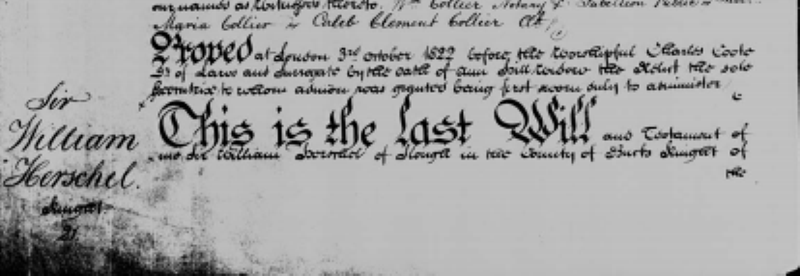 our names as Witnesses thereto. Wm Collier Notary & Tabellion Public
Maria Collier Caleb Clement Collier
Proved at London 3rd October 1822 before the Worshipful Charles Coote
Dr of Laws and Surrogate by the oath of Ann Widow the Relict the sole
Executrix to whom admon was granted being first sworn duly to administer
Sir
William
Herschel.
Knight
21
This is the last Will and Testament of
me Sir William Herschel of Slough in the County of Bucks Knight of
the